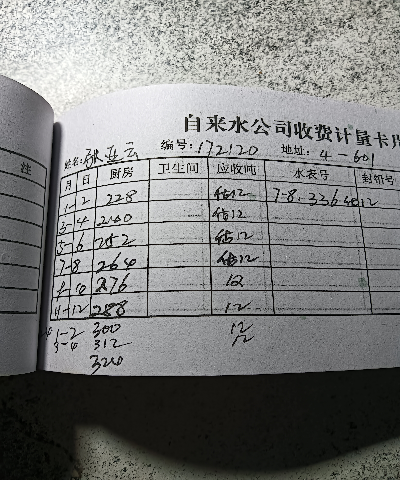 自来水公司收费计量卡片
姓名: 张亚云 编号: 172120 地址: 4-601
注 月 日 厨房 卫生间 应收吨 水表号 封铅号
1-2 228 估12 7-8.3364012
3-4 240 估12
5-6 252 估12
7-8 264 估12
9-10 276 12
11-12 288 12
1-2 300 12
3-4 312 12
320